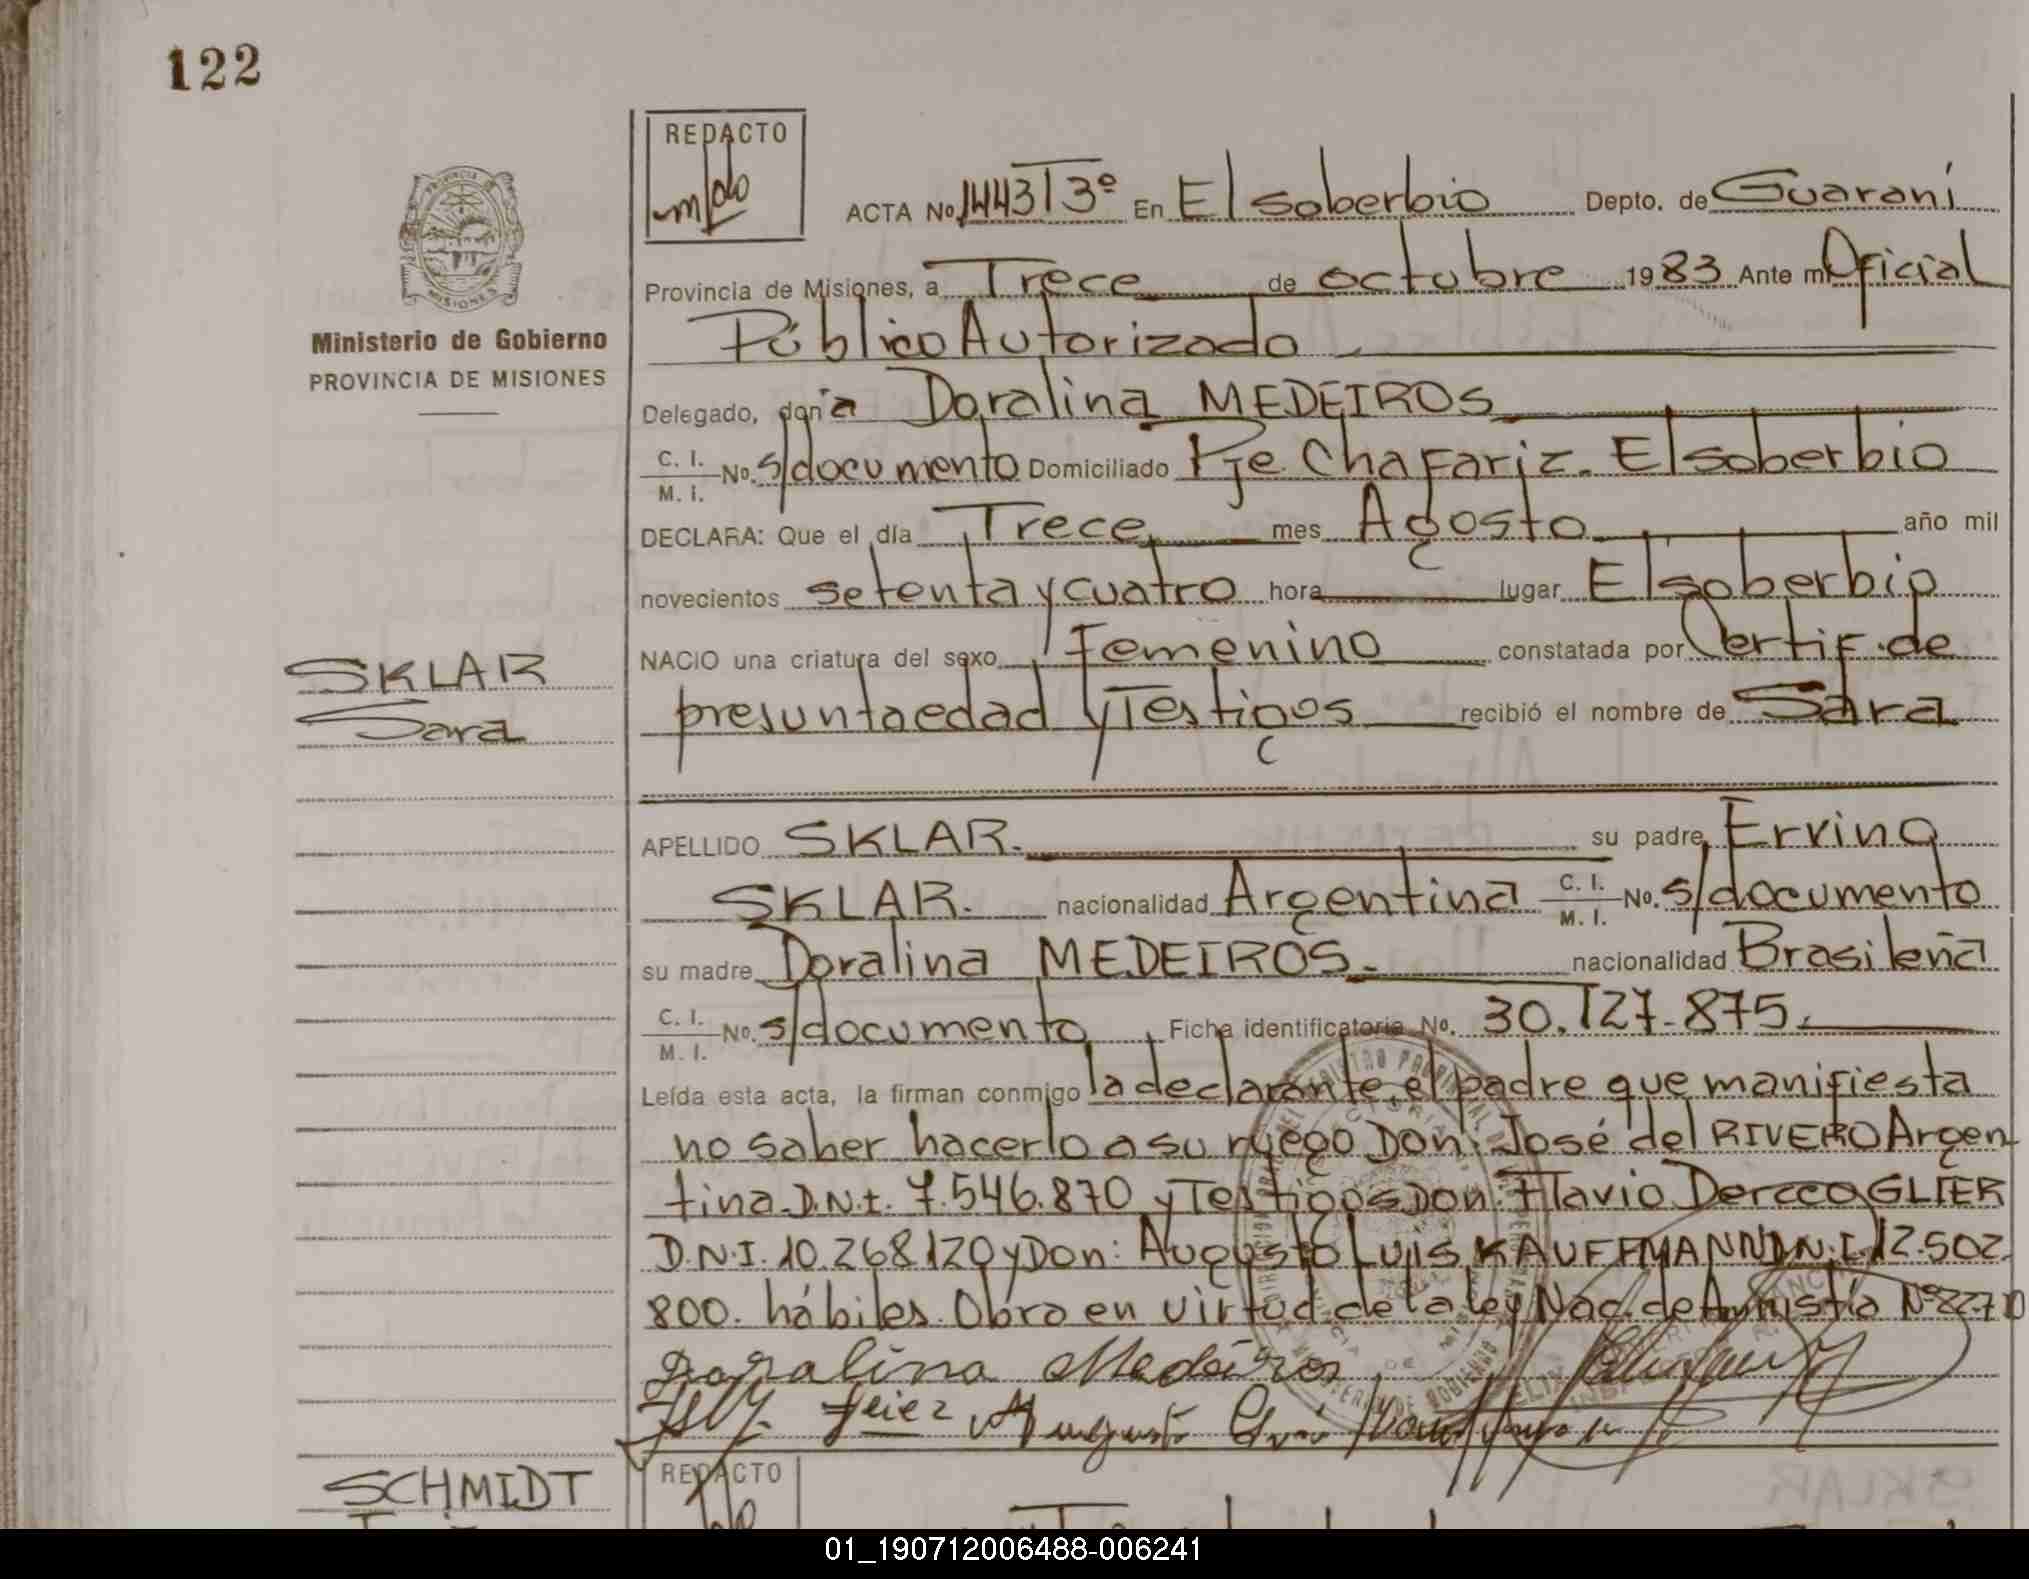 122
REDACTO
ACTA No. 1443 T3º En El soberbio Depto. de Guaraní
Provincia de Misiones, a Trece de octubre 1983 Ante mi Oficial
Público Autorizado
Ministerio de Gobierno
PROVINCIA DE MISIONES
Delegado, don̄a Doralina MEDEIROS
C. I. M. I. No. s/documento Domiciliado Pje. Chafariz. El soberbio
DECLARA: Que el día Trece mes Agosto año mil
novecientos setenta y cuatro hora lugar El soberbio
NACIO una criatura del sexo Femenino constatada por Certif. de
presunta edad y Testigos recibió el nombre de Sara
SKLAR
Sara
APELLIDO SKLAR. su padre Ervino
SKLAR. nacionalidad Argentina C. I. M. I. No. s/documento
su madre Doralina MEDEIROS. nacionalidad Brasileña
C. I. M. I. No. s/documento Ficha identificatoria No. 30.127.875.
Leída esta acta, la firman conmigo la declarante, el padre que manifiesta
no saber hacerlo a su ruego Don: José del RIVERO Argen
tina D.N.I. 7.546.870 y Testigos Don: Flavio GLIER
D.N.I. 10.268120 y Don: Augusto Luis KAUFFMANN D.N.I. 12.502.
800. hábiles. Obra en virtud de la ley Nac. de Amnistía Nº 22.710
Doralina Medeiros
Augusto
SCHMIDT
REDACTO
01_190712006488-006241